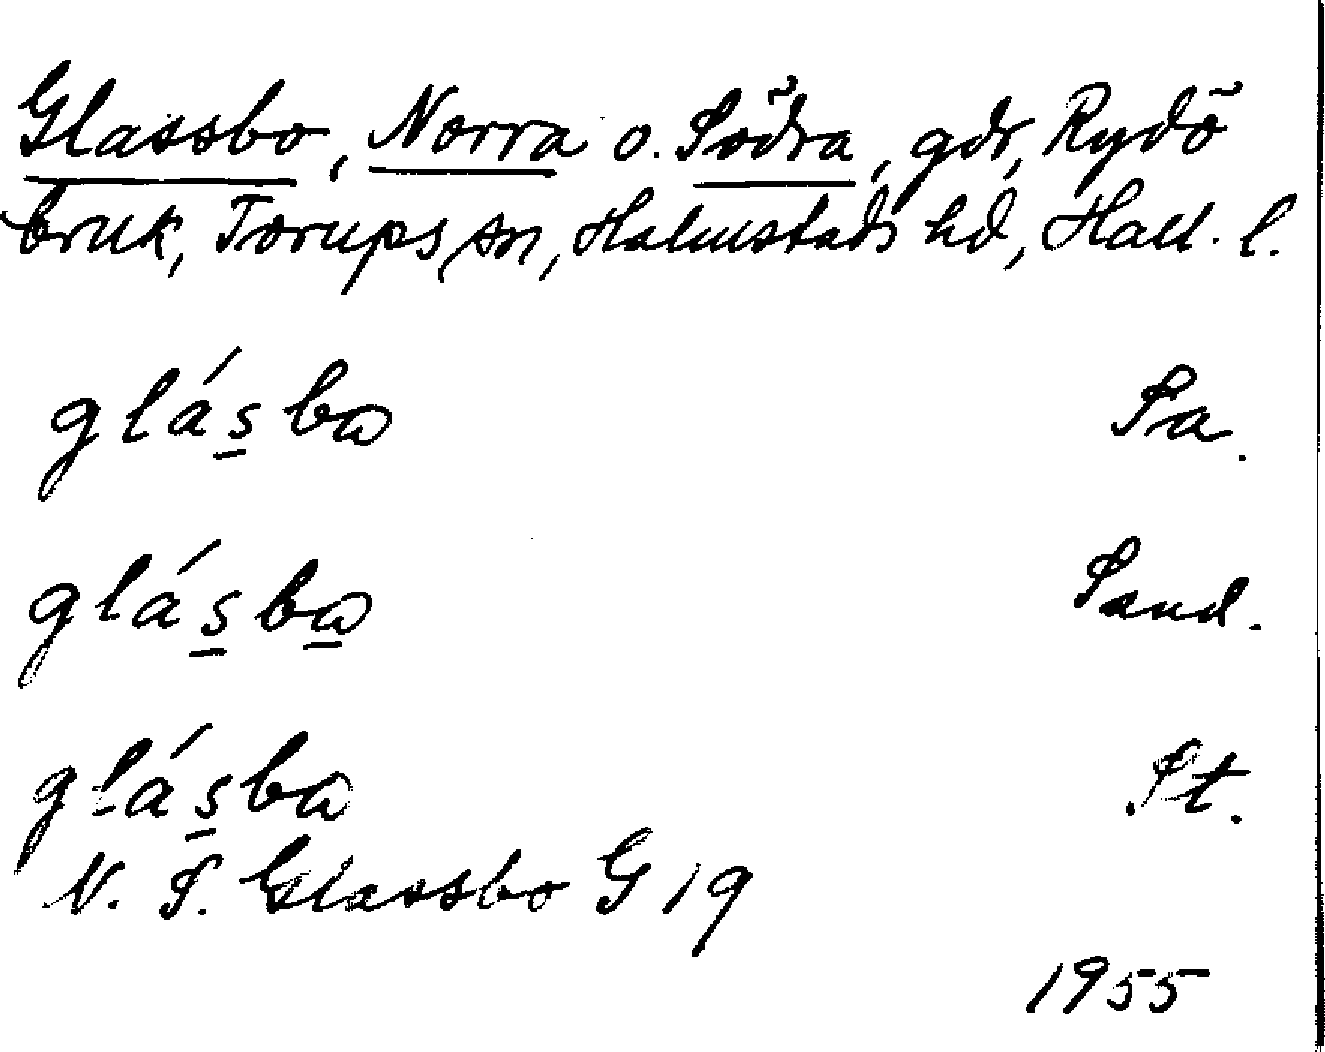 Glassbo, Norra o. Södra, gdr, Rydö
bruk, Torups sn, Halmstads hd, Hall. l.
glásbα Sa.
glásbα Sand.
glásbα St.
N. S. Glassbo G 19
1955